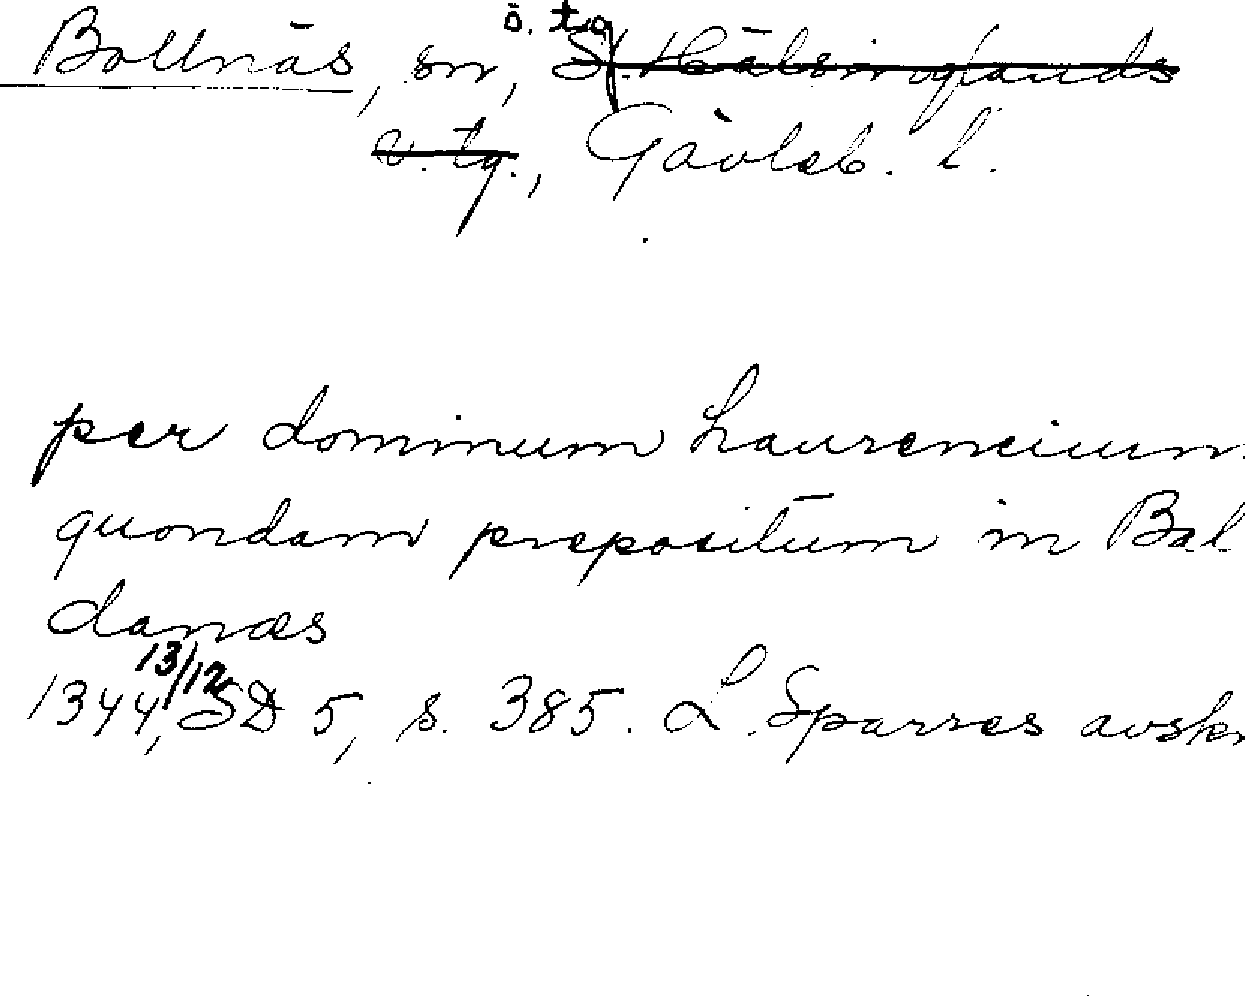 ö. tg
Bollnäs, sn, S. Hälsinglands
v. tg., Gävleb. l.
per dominum Laurencium
quondam prepositum in Bal
danæs
13/12
1344, SD 5, s. 385. L. Sparres avskr